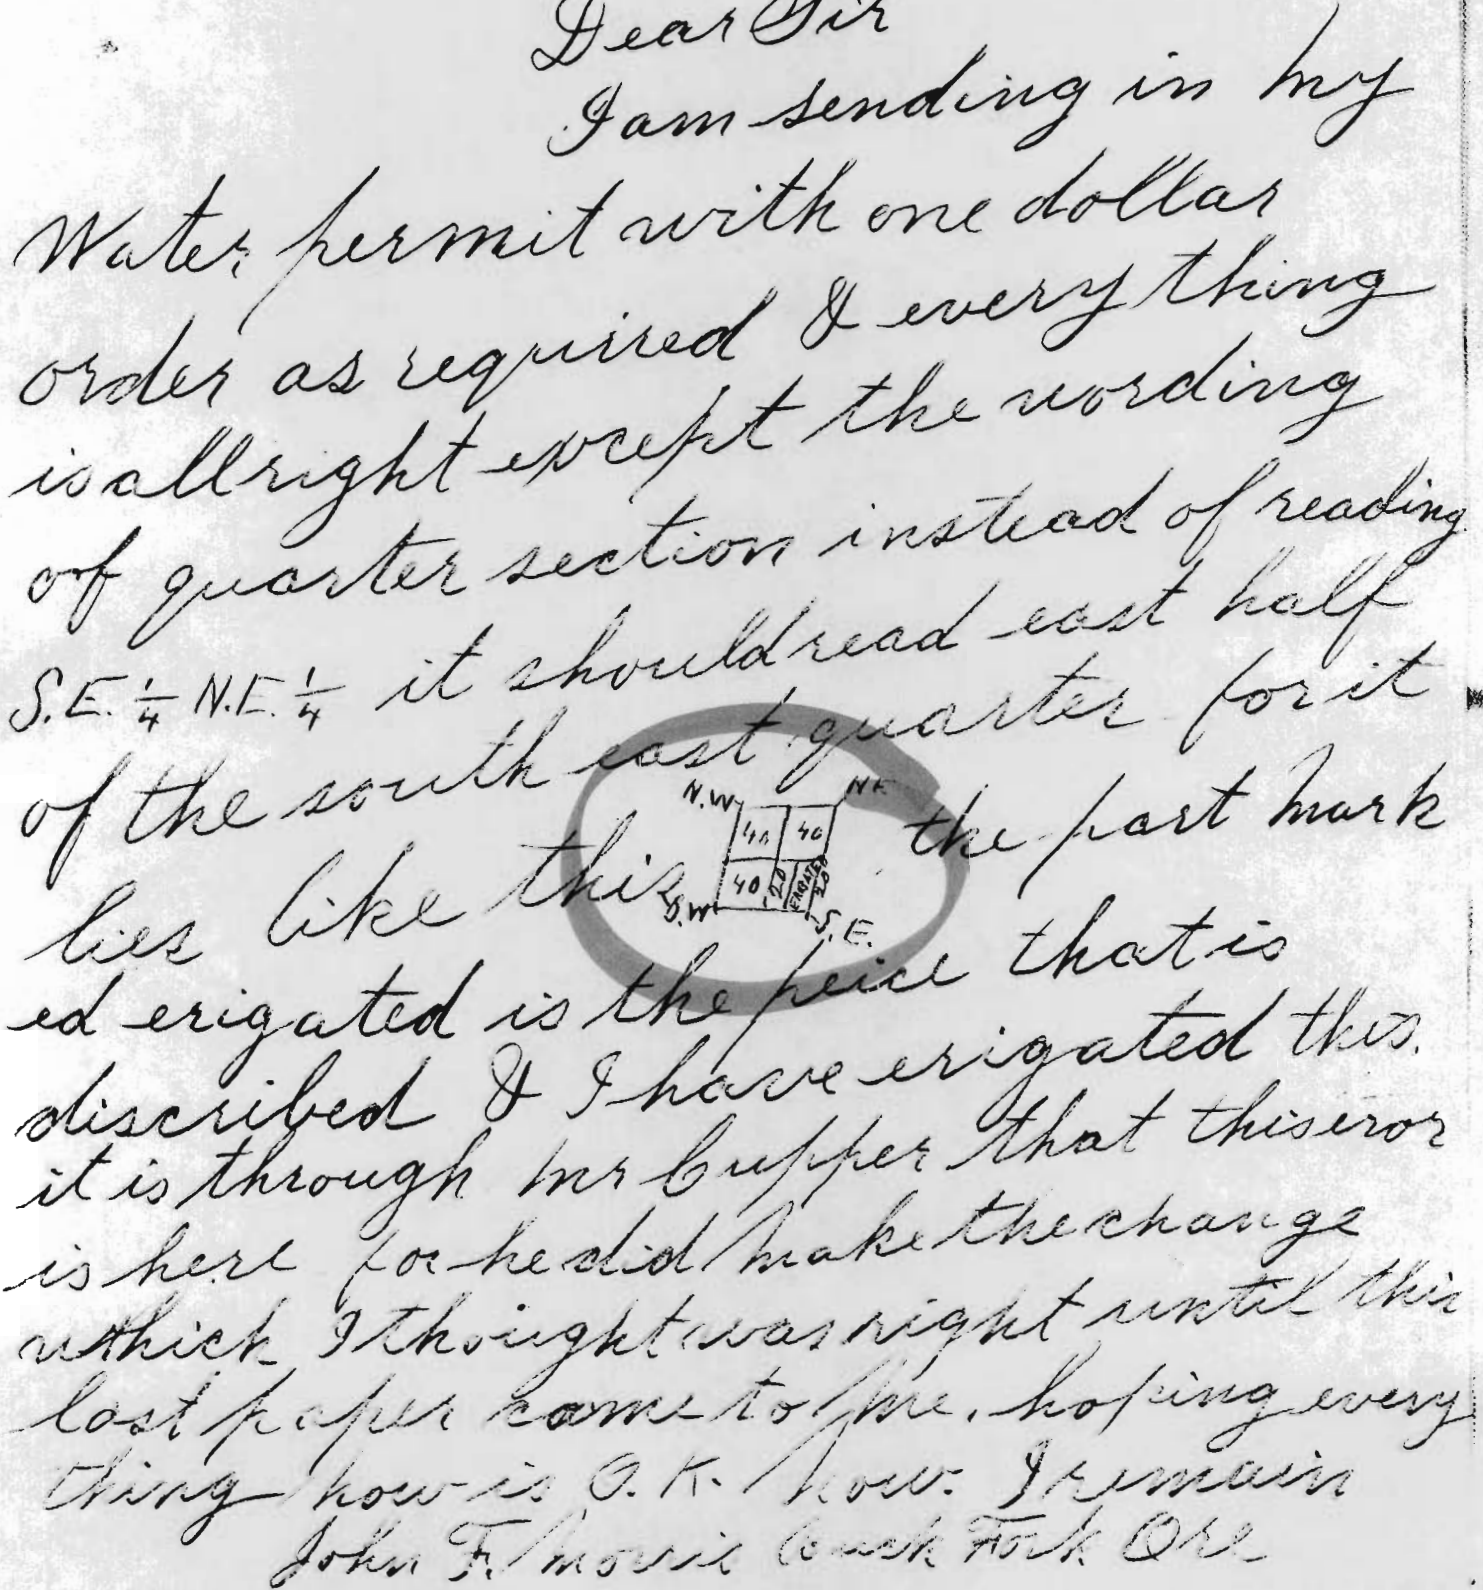 Dear Sir
I am sending in my
Water permit with one dollar
order as required & every thing
is all right except the wording
of quarter section instead of reading
S.E. 1/4 N.E. 1/4 it should read east half
of the south east quarter for it
lies like this
N.W N.E
40 40
40 20 ERIGATED 20
S.W S.E.
the part mark
ed erigated is the peice that is
discribed & I have erigated this.
it is through Mr Cupper that this eror
is here for he did make the change
which I thought was right until this
last paper came to me. hoping every
thing now is O.K. now. I remain
John F. Fork Ore